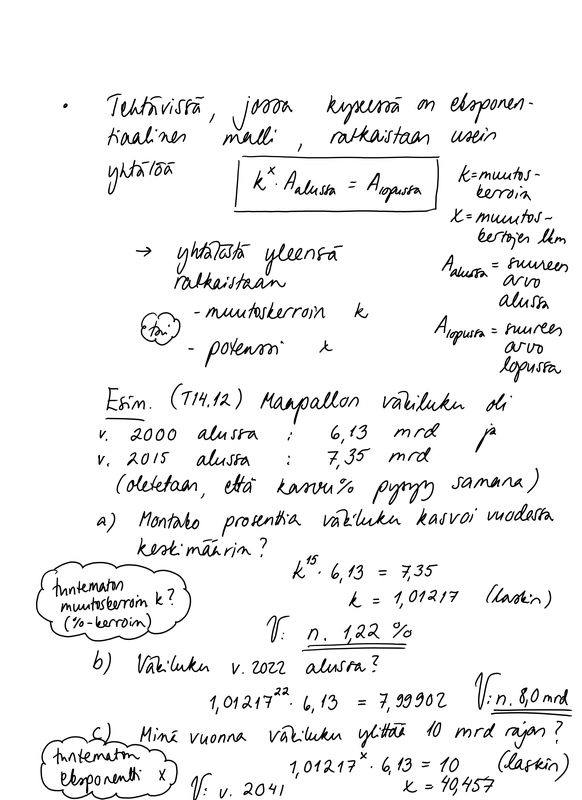 • Tehtävissä, jossa kyseessä on eksponen-
tiaalinen malli, ratkaistaan usein
yhtälöä
k^x · A_alussa = A_lopussa
k = muutos-
kerroin
x = muutos-
kertojen lkm
A_alussa = suureen
arvo
alussa
A_lopussa = suureen
arvo
lopussa
→ yhtälöstä yleensä
ratkaistaan
- muutoskerroin k
tai
- potenssi x
Esim. (T14.12) Maapallon väkiluku oli
v. 2000 alussa : 6,13 mrd ja
v. 2015 alussa : 7,35 mrd
(oletetaan, että kasvu% pysyy samana)
a) Montako prosenttia väkiluku kasvoi vuodessa
keskimäärin?
tuntematon
muutoskerroin k?
(%-kerroin)
k^15 · 6,13 = 7,35
k = 1,01217 (laskin)
V: n. 1,22 %
b) Väkiluku v. 2022 alussa?
1,01217^22 · 6,13 = 7,99902 V: n. 8,0 mrd
c) Minä vuonna väkiluku ylittää 10 mrd rajan?
tuntematon
eksponentti x
1,01217^x · 6,13 = 10 (laskin)
x = 40,457
V: v. 2041